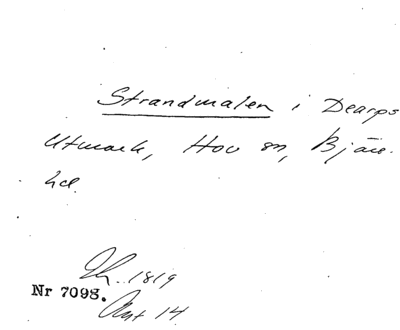 Strandmalen i Dearps
Utmark, Hov sn, Bjäre
hd.
1819
Nr 7098.
Ant 14